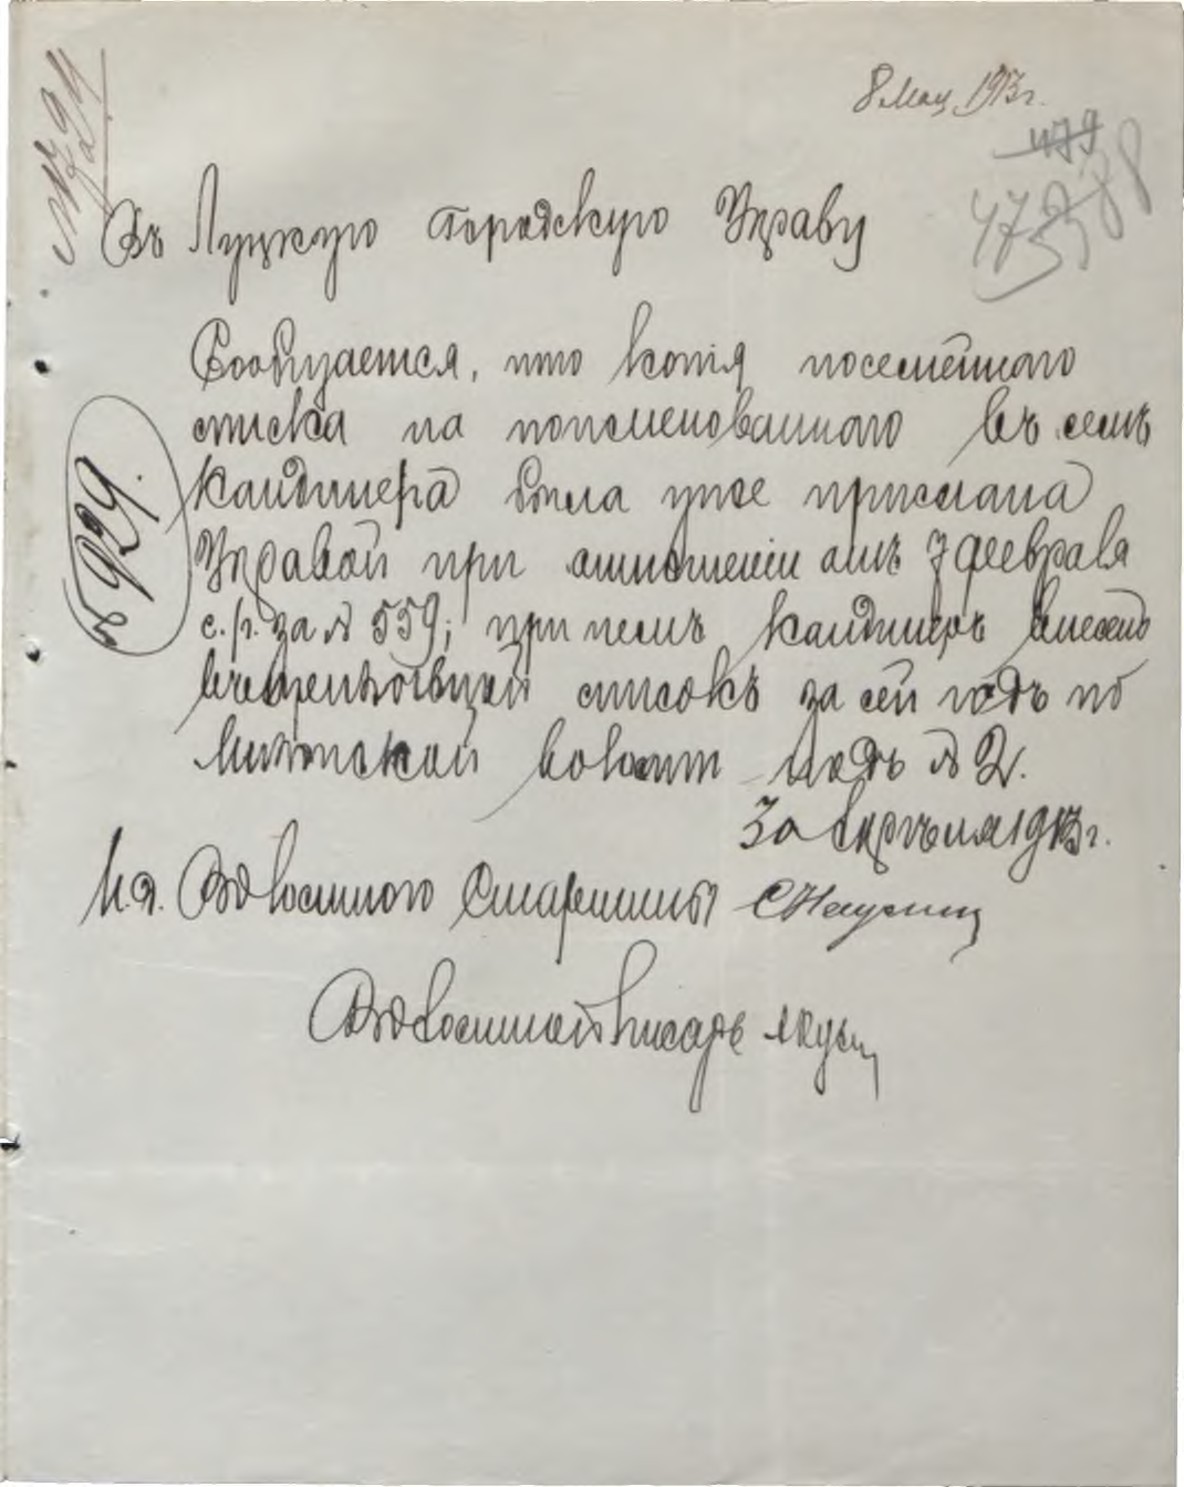 8 Мая 1913 г.
479
Въ Луцкую Городскую Управу
Сообщается, что копія посемейнаго
списка на поименованнаго въ семъ
Кандинера была уже прислана
Управой при отношеніи отъ 7 февраля
с. г. за № 559; при чемъ Кандинеръ внесенъ
въ списокъ за сей годъ по
волости подъ № 2.
30 апрѣля 1913 г.
№ 929.
И.д. Волостного Старшины
Волостной писарь